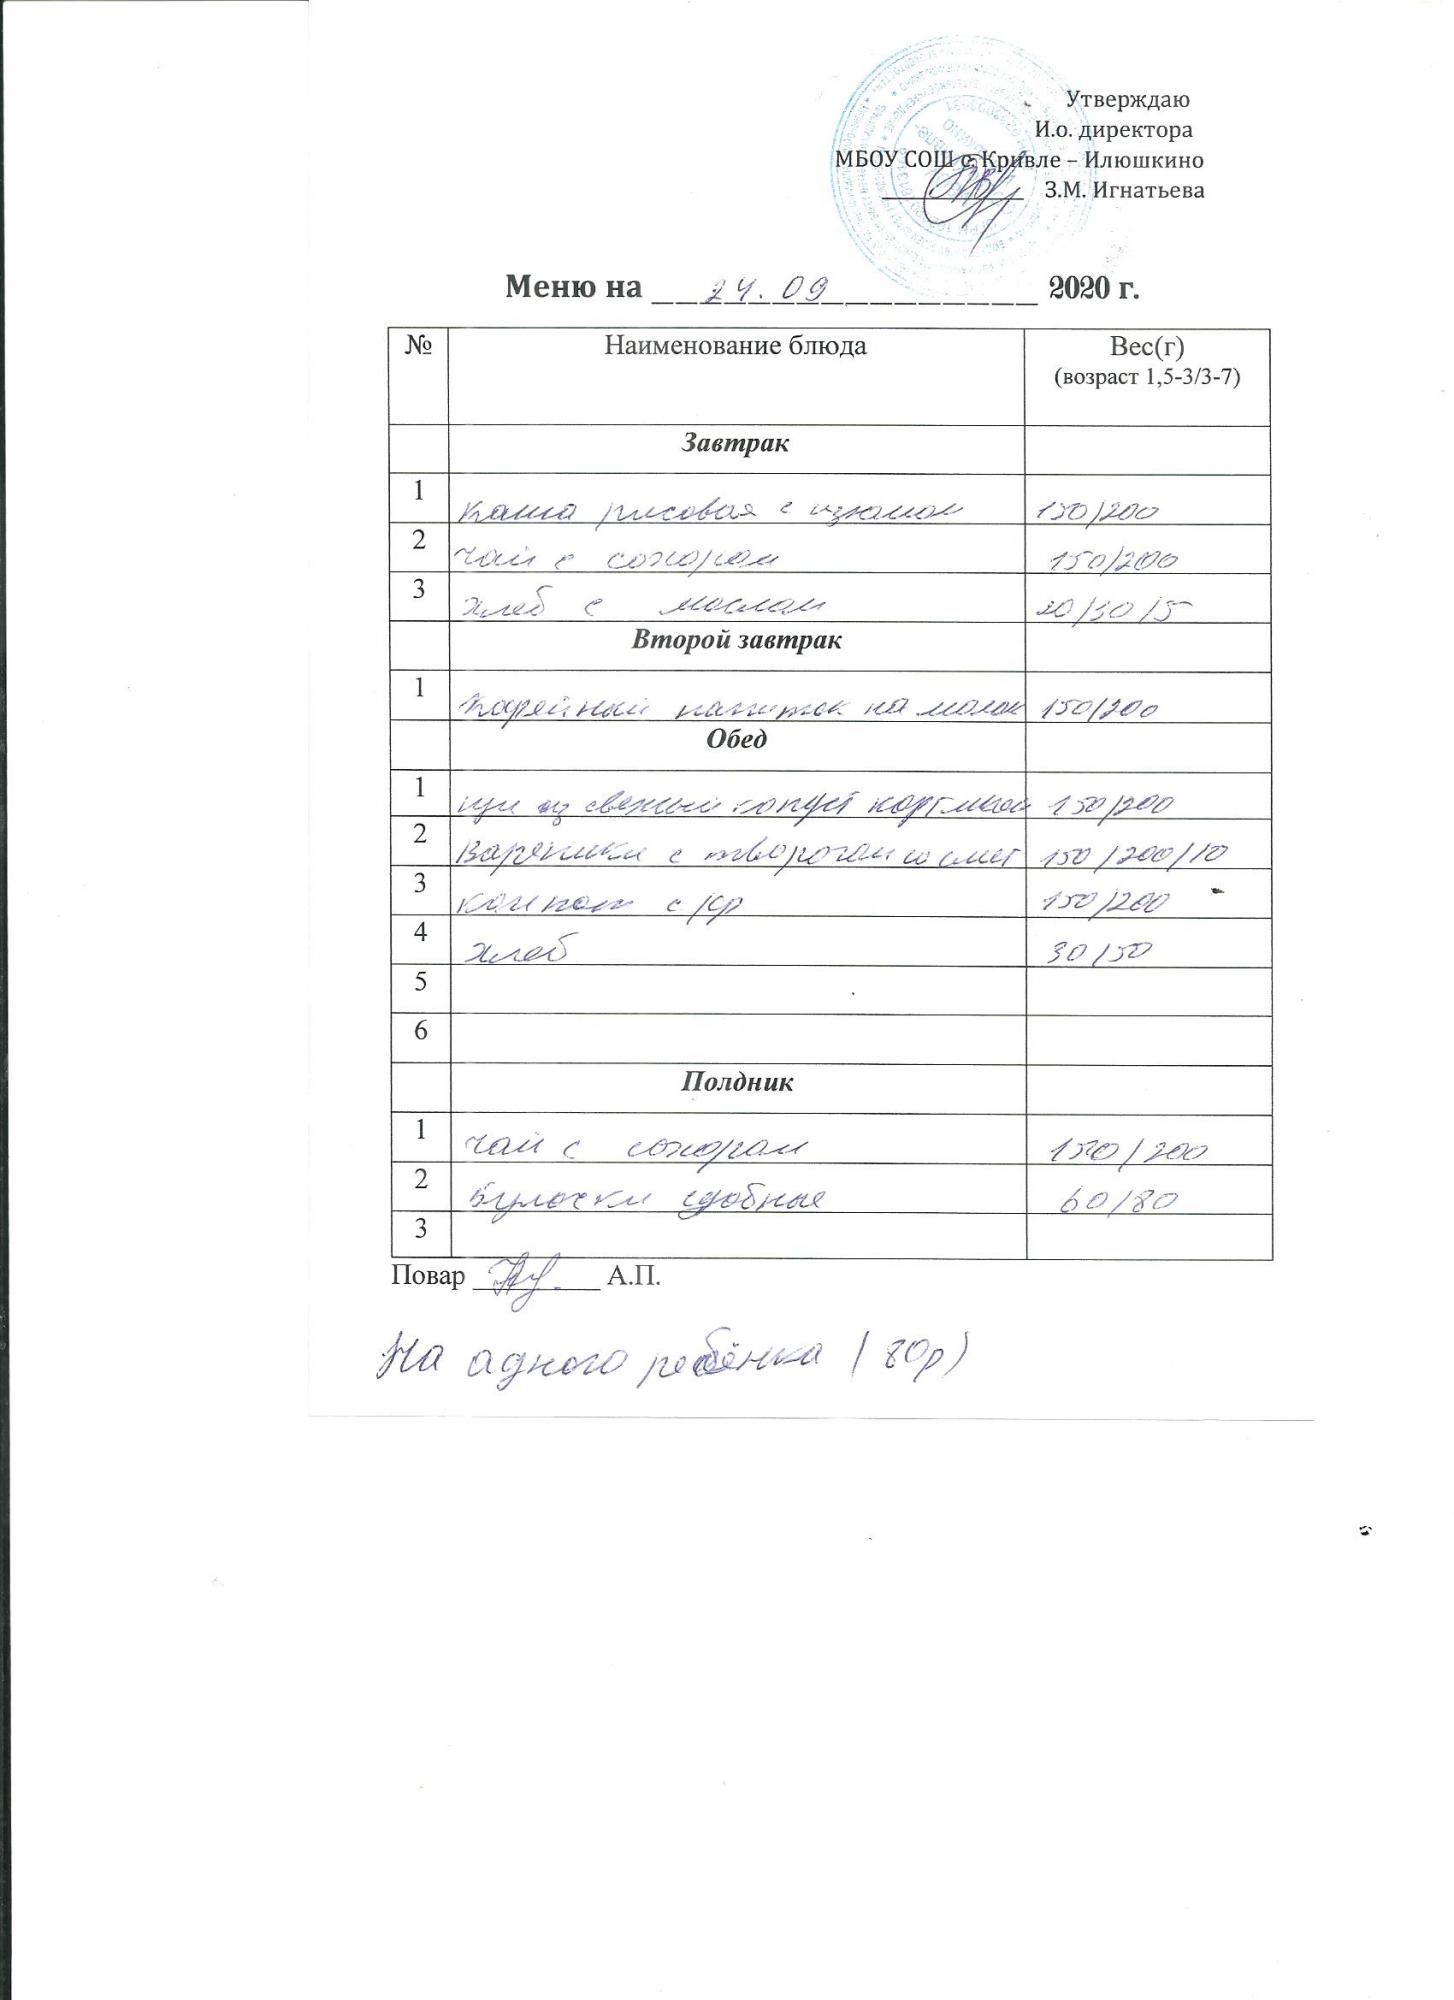 Утверждаю
И.о. директора
МБОУ СОШ с. Кривле – Илюшкино
З.М. Игнатьева
Меню на 24.09 2020 г.
№ Наименование блюда Вес(г)
(возраст 1,5-3/3-7)
Завтрак
1 Каша рисовая с изюмом 150/200
2 чай с сахаром 150/200
3 хлеб с маслом 20/30/5
Второй завтрак
1 Кофейный напиток на молок 150/200
Обед
1 щи из свежий капуст карт мясн 150/200
2 Вареники с творогом со смет 150/200/10
3 компот с/фр 150/200
4 хлеб 30/50
5
6
Полдник
1 чай с сахаром 150/200
2 Булочки сдобные 60/80
3
Повар А.П.
На адного ребёнка (80р)